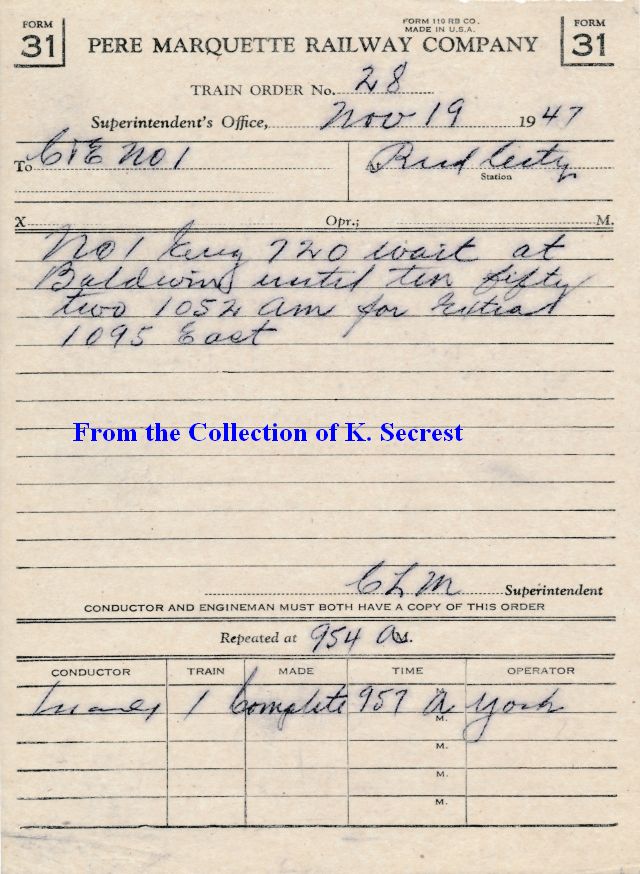 FORM 31
FORM 110 RB CO.
MADE IN U.S.A.
FORM 31
PERE MARQUETTE RAILWAY COMPANY
TRAIN ORDER No. 28
Superintendent's Office, Nov 19 1947
To C&E No 1 At Reed City
Station
X Opr.; M.
No 1 Eng 720 wait at
Baldwin until ten fifty
two 1052 am for Extra
1095 East
From the Collection of K. Secrest
C L M Superintendent
CONDUCTOR AND ENGINEMAN MUST BOTH HAVE A COPY OF THIS ORDER
Repeated at 954 A M.
CONDUCTOR TRAIN MADE TIME OPERATOR
1 Complete 957 A M. York
M.
M.
M.